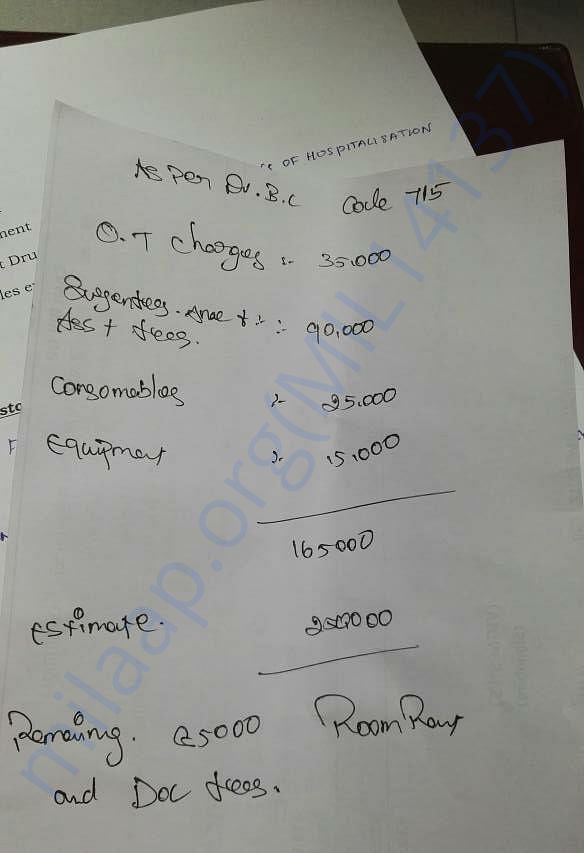 e OF HOSPITALISATION
As Per Dr. B.C Code 715
ment
O.T Charges :- 35.000
t Dru
les e
Ass + fees. :- 90,000
Consomables :- 25.000
sto
Equipment :- 15,000
165000
Estimate.
Remaining. 85000 Room Rent
and Doc fees.
milaap.org(MIL14137)